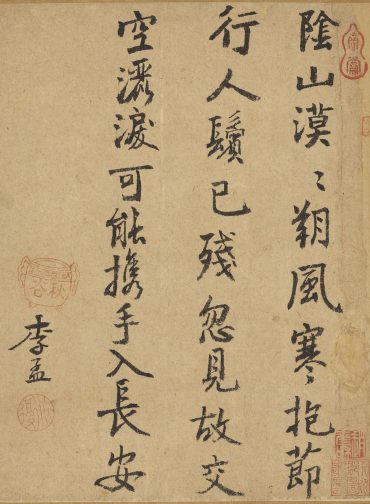 陰山漠〻朔風寒抱節
行人鬢已殘忽見故交
空灑淚可能攜手入長安
李孟